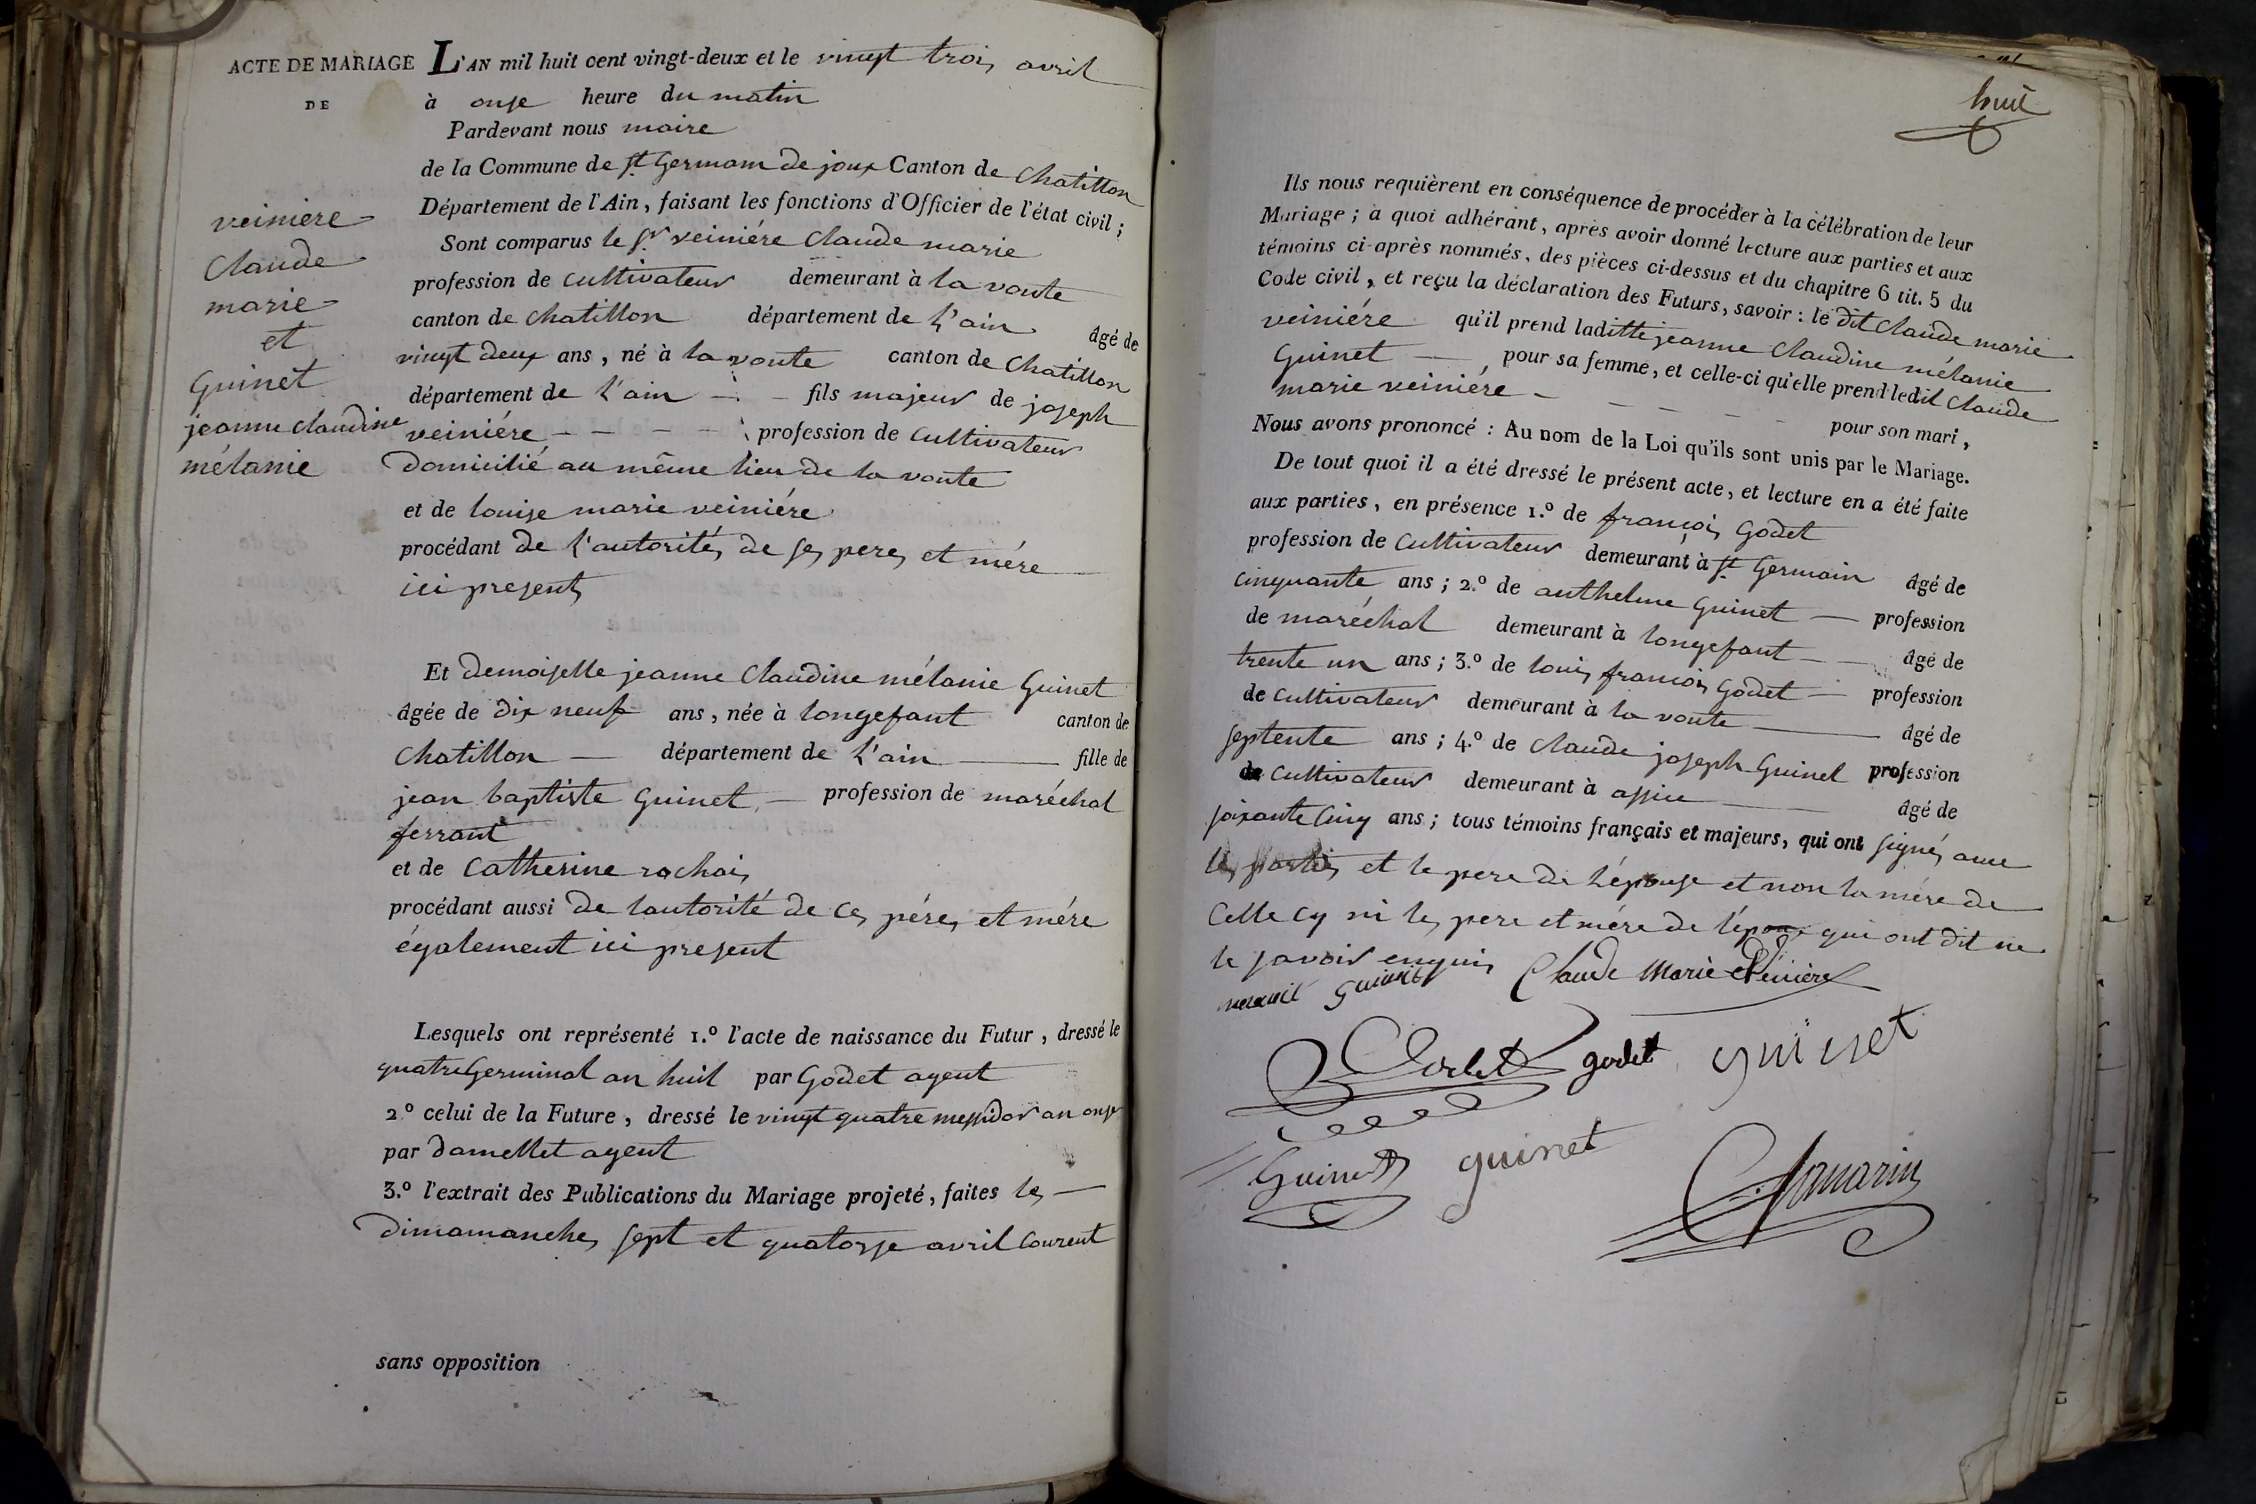 ACTE DE MARIAGE
DE
veiniere
Claude
marie
et
Guinet
jeanne claudine
mélanie
L'AN mil huit cent vingt-deux et le vingt trois avril
à onze heure du matin
Pardevant nous maire
de la Commune de St Germain de joux Canton de Chatillon
Département de l'Ain, faisant les fonctions d'Officier de l'état civil ;
Sont comparus le Sr veiniére Claude marie
profession de Cultivateur demeurant à la voute
canton de chatillon département de l'ain âgé de
vingt deux ans, né à la voute canton de Chatillon
département de l'ain - - fils majeur de joseph
veiniére - - - - profession de Cultivateur
domicilié au même lieu de la voute
et de louise marie veiniére
procédant de l'autorités de ses peres et mére
ici presents
Et demoiselle jeanne Claudine mélanie Guinet
âgée de dix neuf ans, née à longefant canton de
Chatillon — département de l'ain — fille de
jean baptiste Guinet — profession de maréchal
ferrant
et de Catherine rochais
procédant aussi de lautorité de ces péres et mére
également ici present
Lesquels ont représenté 1.º l'acte de naissance du Futur, dressé le
quatre Germinal an huit par Godet agent
2º celui de la Future, dressé le vingt quatre messidor an onze
par damettet agent
3.º l'extrait des Publications du Mariage projeté, faites les —
dimamanches sept et quatorze avril Courent
sans opposition
huit
Ils nous requièrent en conséquence de procéder à la célébration de leur
Mariage ; à quoi adhérant, après avoir donné lecture aux parties et aux
témoins ci-après nommés, des pièces ci-dessus et du chapitre 6 tit. 5 du
Code civil, et reçu la déclaration des Futurs, savoir : le dit Claude marie
veiniére qu'il prend laditte jeanne Claudine mélanie
Guinet — pour sa femme, et celle-ci qu'elle prend ledit Claude
marie veiniére - - - - - pour son mari,
Nous avons prononcé : Au nom de la Loi qu'ils sont unis par le Mariage.
De tout quoi il a été dressé le présent acte, et lecture en a été faite
aux parties, en présence 1.º de françois Godet
profession de Cultivateur demeurant à St Germain âgé de
Cinquante ans ; 2.º de anthelme Guinet — profession
de maréchal demeurant à longefant — âgé de
trente un ans ; 3.º de louis francois Godet — profession
de Cultivateur demeurant à la voute — âgé de
septente ans ; 4.º de Claude joseph Guinet profession
de Cultivateur demeurant à — âgé de
soixante Cinq ans ; tous témoins français et majeurs, qui ont signés avec
les parties et le pere de l'épouse et non la mére de
Celle cy ni les pere et mére de l'époux qui ont dit ne
le savoir enquis Claude Marie Veinière
Guinet
godet guinet
Guinet guinet